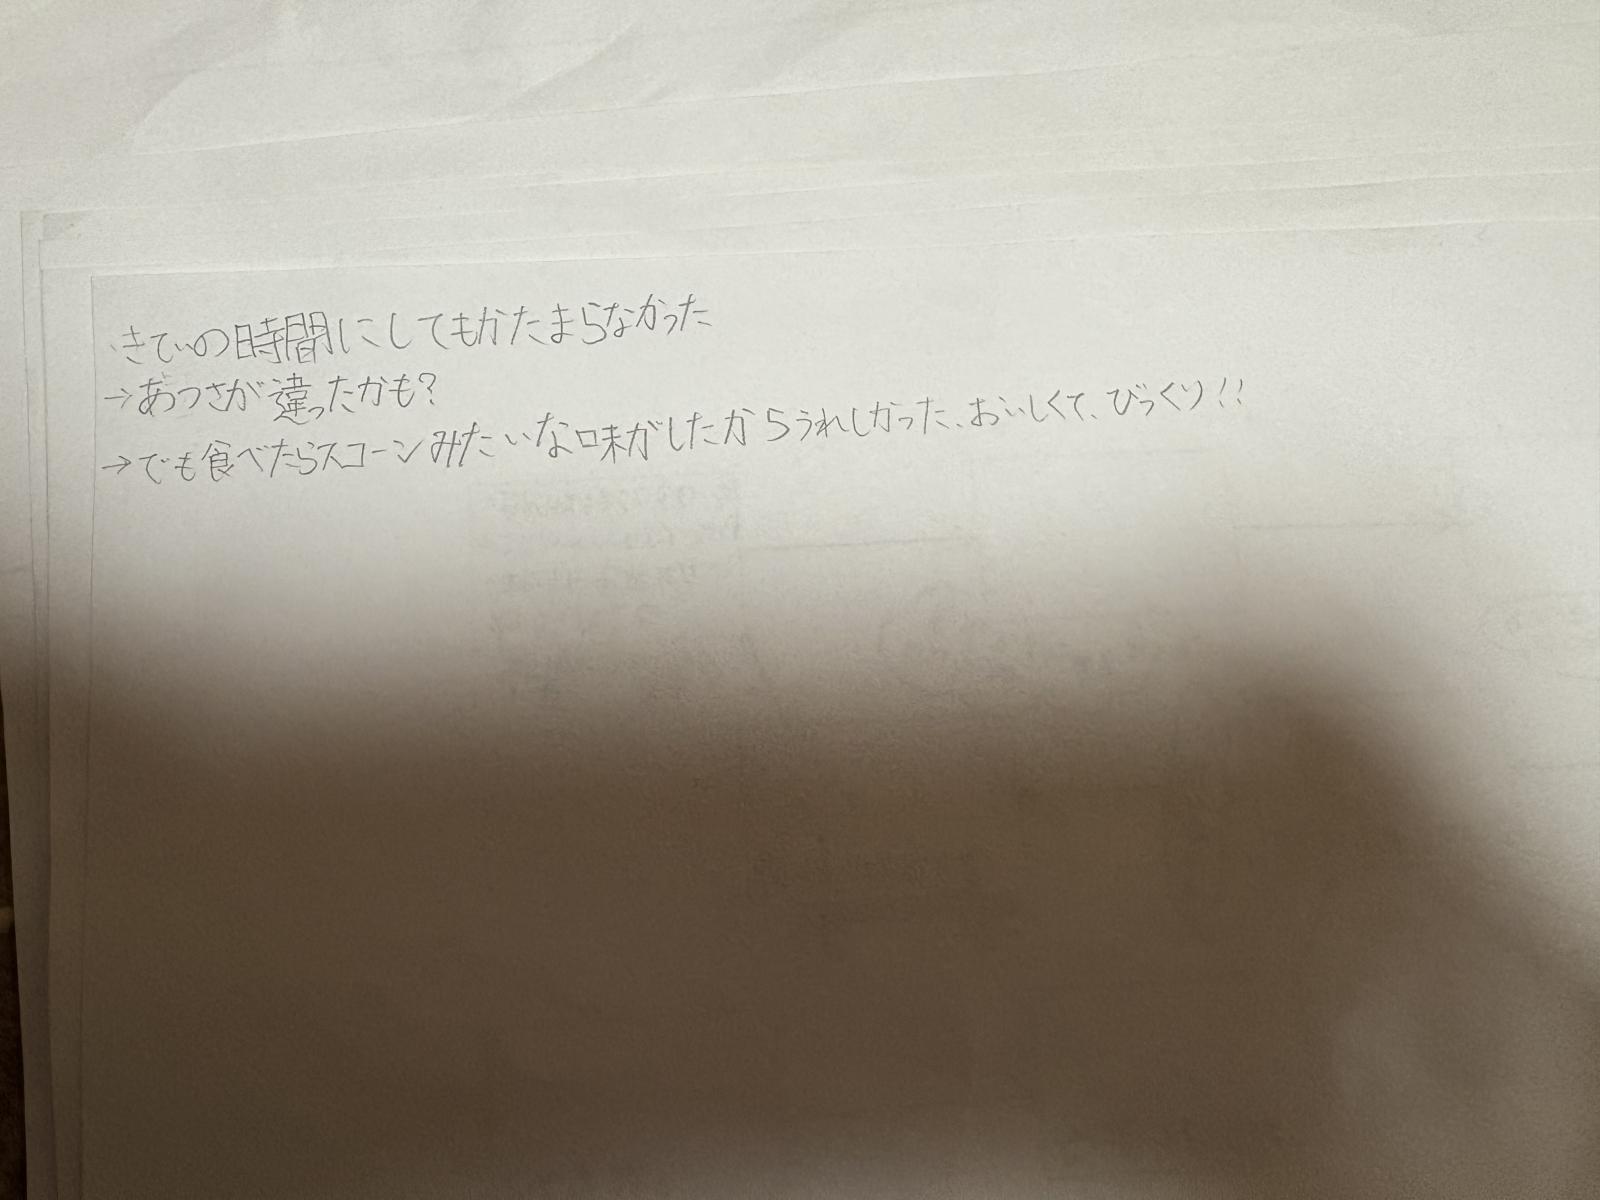 ・きてぃの時間にしてもかたまらなかった
→あつさが違ったかも?
→でも食べたらスコーンみたいな味がしたからうれしかった、おいしくて、びっくり!!